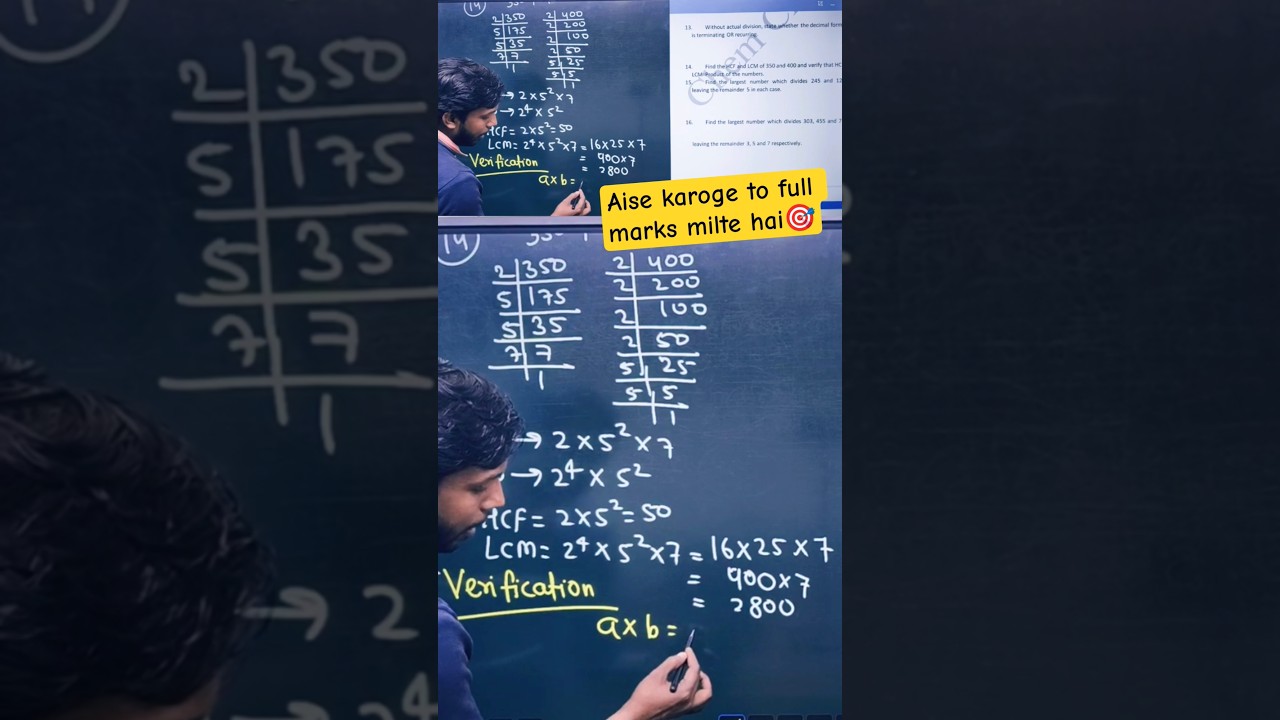 14
2 350
5 175
5 35
7 7
1
2 400
2 200
2 100
2 50
5 25
5 5
1
→ 2 × 5² × 7
→ 2⁴ × 5²
HCF = 2×5² = 50
LCM = 2⁴ × 5² × 7 = 16×25×7
= 400×7
= 2800
Verification
a×b =
13. Without actual division, state whether the decimal form
is terminating OR recurring.
14. Find the HCF and LCM of 350 and 400 and verify that HC
LCM=Product of the numbers.
15. Find the largest number which divides 245 and
leaving the remainder 5 in each case.
16. Find the largest number which divides 303, 455 and 7
leaving the remainder 3, 5 and 7 respectively.
Aise karoge to full
marks milte hai🎯
14
2 350
5 175
5 35
7 7
1
2 400
2 200
2 100
2 50
5 25
5 5
1
→ 2 × 5² × 7
→ 2⁴ × 5²
HCF = 2×5² = 50
LCM = 2⁴ × 5² × 7 = 16×25×7
= 400×7
= 2800
Verification
a×b =